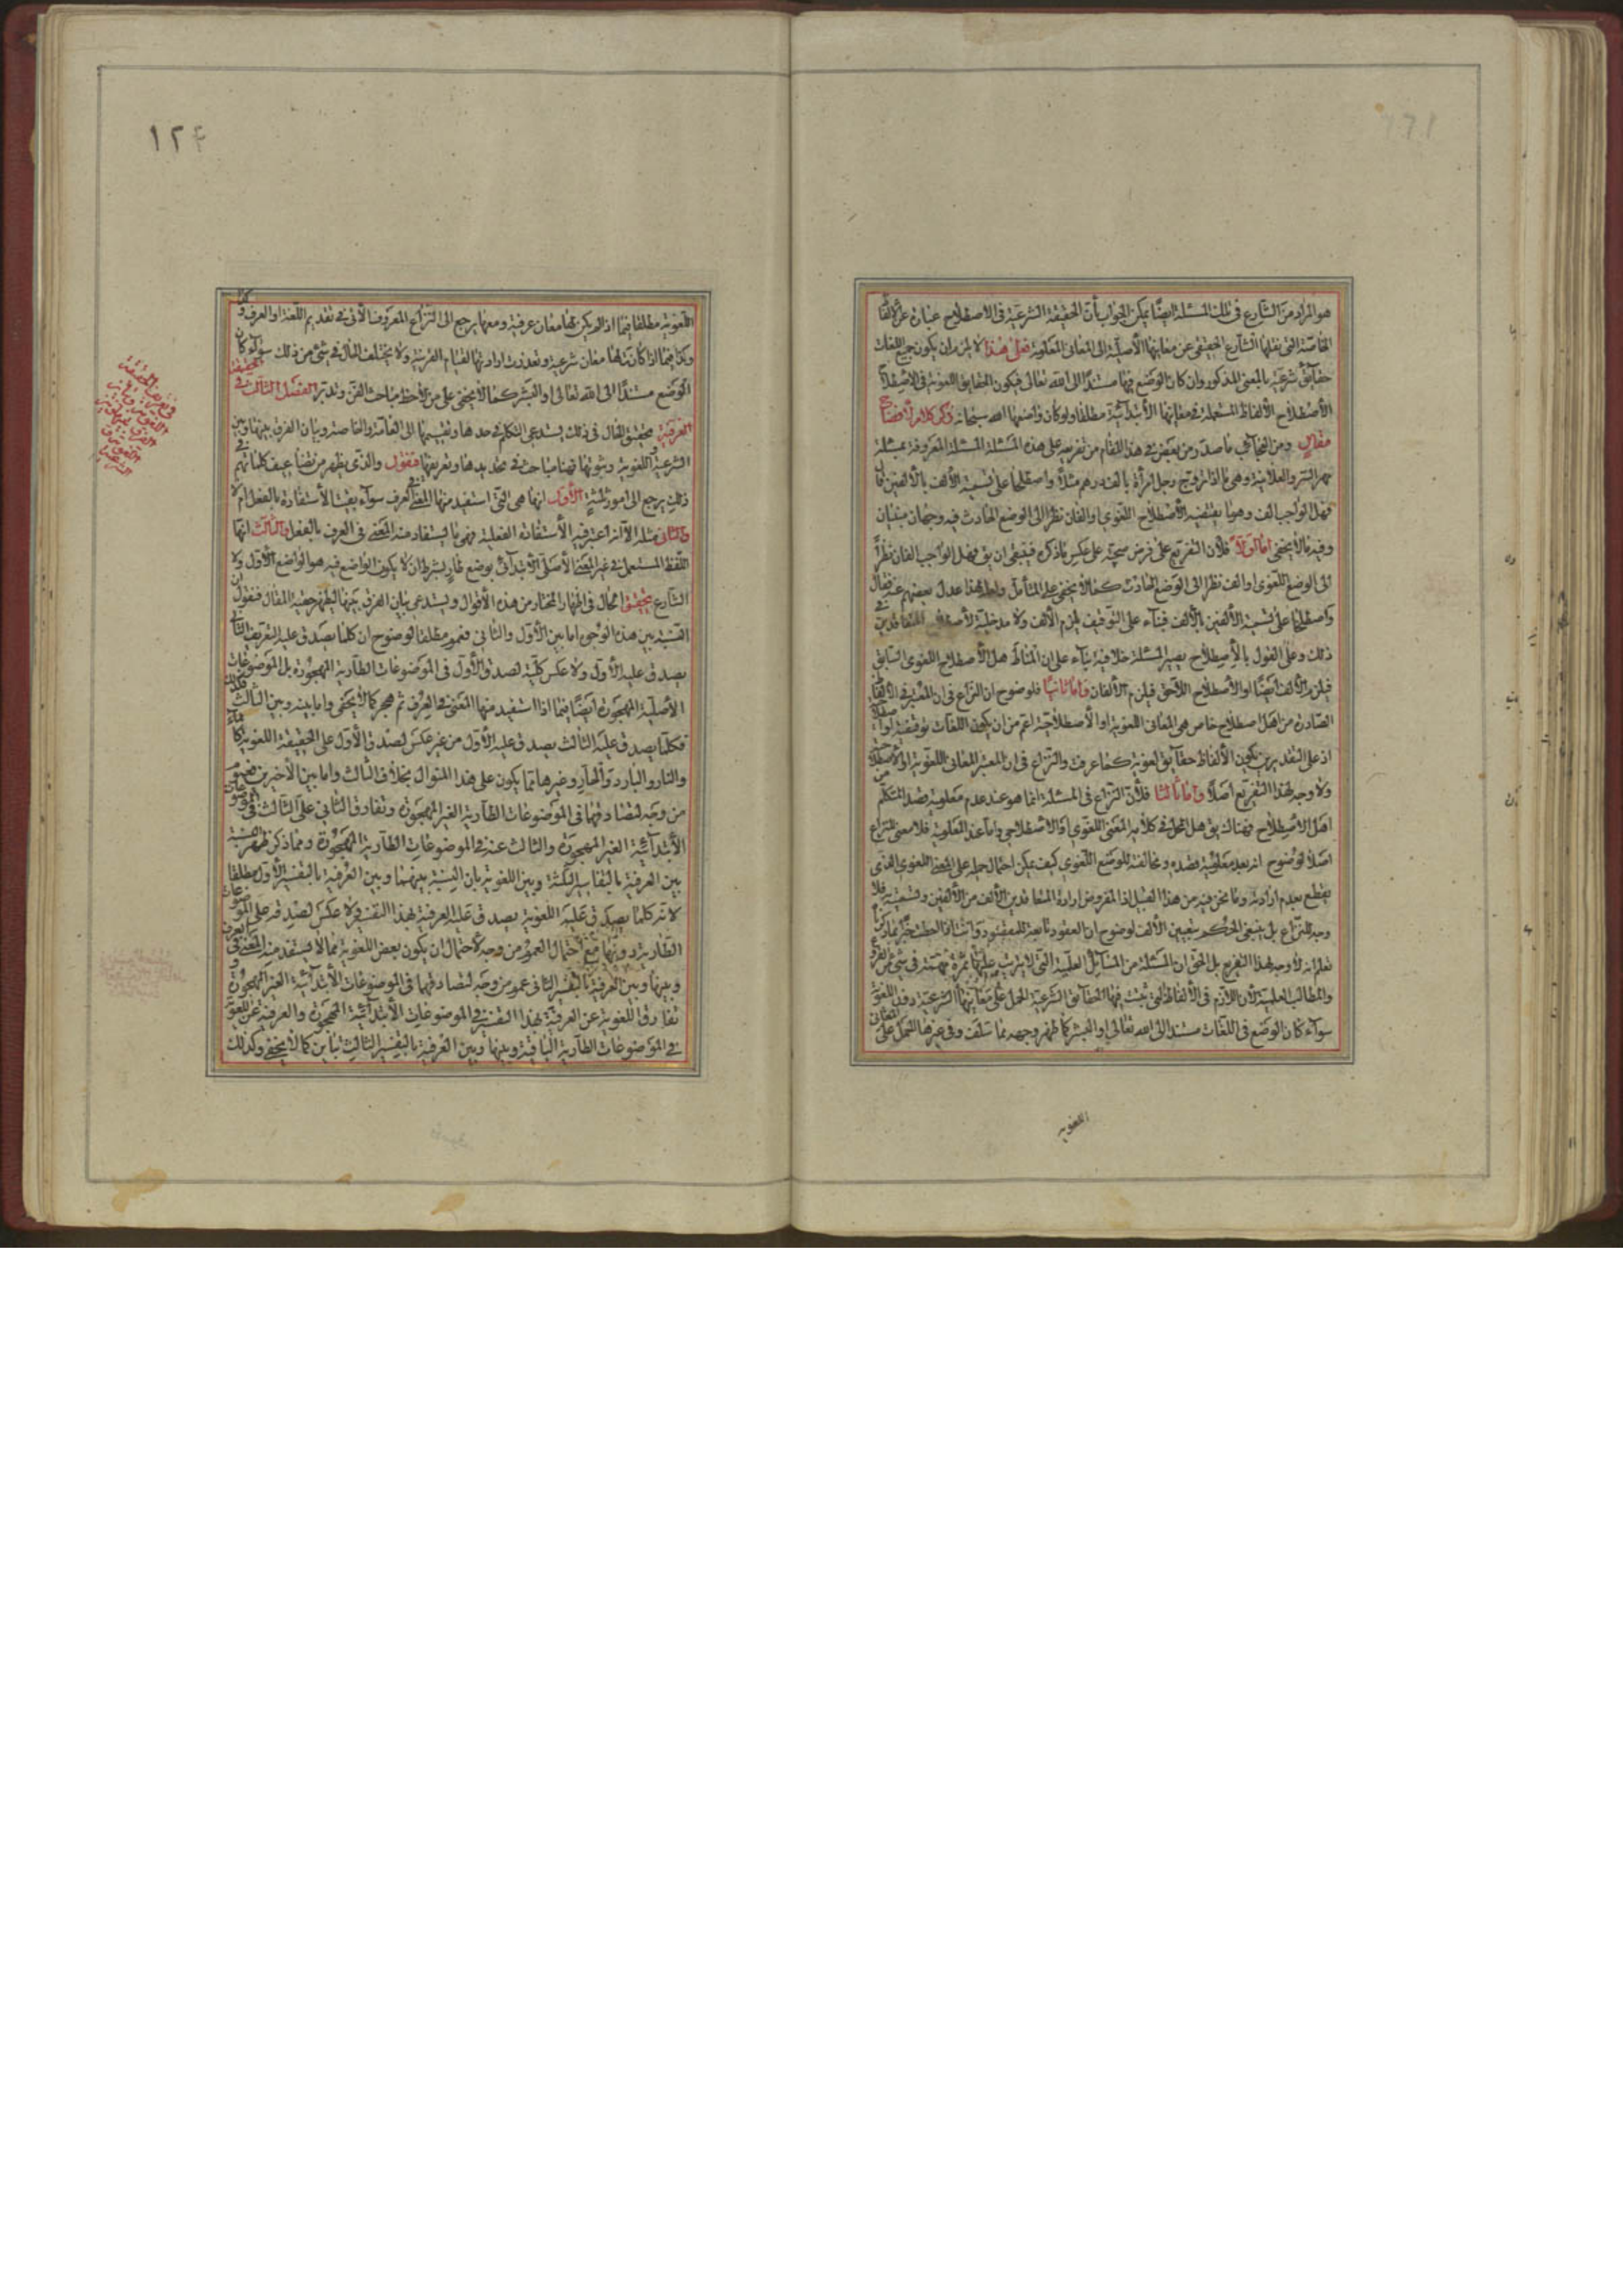 هو المراد من الشارع فى تلك المسئلة ايضًا يمكن الجواب بأن الحقيقة الشرعية فى الاصطلاح عبارة عن الالفاظ
الخاصة التى نقلها الشارع الحقيقى عن معانيها الأصلية الى المعانى المعلومة فعلى هذا لا يلزم ان يكون جميع اللغات
حقايق شرعية بالمعنى المذكور وان كان الوضع فيها مستندًا الى الله تعالى فيكون الحقايق اللغوية فى الاصطلاح
الأصطلاح الألفاظ المستعملة فى معانيها الأبتدائية مطلقا ولو كان واضعها الله سبحانه ذكر كلام لأيضاح
مقالٍ ومن العجائب ما صدر من بعض فى هذا المقام من تفريعه على هذه المسئلة المسئلة المعروفة بمسئلة
مهر السر والعلانية وهى ما اذا تزوج رجل امرأة بالف درهم مثلًا واصطلحا على تسمية الألف بالألفين
فهل الواجب الف وهو ما يقتضيه الأصطلاح اللغوى او الفان نظرًا الى الوضع الحادث فيه وجهان مبنيان
وفيه ما لا يخفى اما اولًا فلأن التفريع على فرض صحته على عكس ما ذكره فينبغى ان يق فهل الواجب الفان نظرًا
الى الوضع اللغوى او الف نظرًا الى الوضع الحادث كما لا يخفى على المتأمل ولهذا عدل بعضهم عنه فقال
واصطلحا على تسمية الألفين بالألف فبناء على التوقيف يلزم الألف ولا مدخلية لأصطلاح المتعاقدين فى
ذلك وعلى القول بالأصطلاح يصير المسئلة خلافية بناء على ان المناط هل الأصطلاح اللغوى السابق
فيلزم الألف ايضًا او الأصطلاح اللاحق فيلزم الألفان واما ثانيًا فلوضوح ان النزاع فى ان المعتبر فى الألفاظ
الصادرة من اهل اصطلاح خاص هى المعانى اللغوية او الأصطلاحية اعم من ان يكون اللغات توقيفية او اصطلاحية
اذ على التقديرين يكون الألفاظ حقايق لغوية كما عرفت والنزاع فى ان المعتبر المعانى اللغوية او الأصطلاحية
ولا وجه لهذا التفريع اصلًا واما ثالثا فلأن النزاع فى المسئلة انما هو عند عدم معلومية قصد المتكلم من
اهل الأصطلاح فهناك يق هل المحمل فى كلامه المعنى اللغوى او الاصطلاحى واما عند المعلومية فلا معنى للنزاع
اصلًا لوضوح انه بعد معلومية قصده ومخالفته للوضع اللغوى كيف يمكن احتمال حمله على المعنى اللغوى الذى
يقطع بعدم ارادته وما نحن فيه من هذا القبيل اذ المفروض ارادة المتعاقدين الألف من الألفين وتسميته فلا
وجه للنزاع بل ينبغى الحكم بتعيين الألف لوضوح ان العقود تابعة للمقصود
تعلم انه لا وجه لهذا التفريع بل الحق ان المسئلة من المسائل العلمية التى لا يترتب عليها ثمرة مهمة فى شئ من الفروع
والمطالب العلمية لأن اللازم فى الألفاظ التى ثبتت فيها الحقايق الشرعية الحمل على معانيها الشرعية دون اللغوية
سواء كان الوضع فى اللغات مستندًا الى الله تعالى او البشر كما ظهر وجهه مما سلف وفى غيرها الحمل على المعانى
اللغوية
١٢۴
اللغوية مطلقا فيما اذا لم يكن لها معان عرفية ومعها يرجع الى النزاع المعروف الأتى فى تقديم اللغة او العرف
وكذا فيما اذا كانت لها معان شرعية وتعذرت ارادتها لقيام القرينة ولا يختلف الحال فى شئ من ذلك سواء كان
الوضع مستندًا الى الله تعالى او البشر كما لا يخفى على من لاحظ مباحث الفن وتدبر الفصل الثالث فى الحقيقة
العرفية تحقيق الحال فى ذلك يستدعى التكلم فى حدها وتقسيمها الى العامة والخاصة وبيان الفرق بينها وبين
الشرعية واللغوية وثبوتها فهنا مباحث فى تحديدها وتعريفها فنقول والذى يظهر من تضاعيف كلماتهم فى
ذلك يرجع الى امور ثلثة الأول انها هى التى استفيد منها المعنى فى العرف سواء بقيت الأستفادة بالفعل ام لا
والثانى مثله الا انه اعتبر فيه الأستفادة الفعلية فهى ما يستفاد منه المعنى فى العرف بالفعل والثالث انها
اللفظ المستعمل فى غير المعنى الأصلى الأبتدائى بوضع طارٍ بشرط ان لا يكون الواضع فيه هو الواضع الأول ولا
الشارع تحقيق الحال فى اظهار المختار من هذه الأقوال ويستدعى بيان الفرق بينها ليظهر حقية المقال فنقول ان
النسبة بين هذه الوجوه اما بين الأول والثانى فعموم مطلقا لوضوح ان كلما يصدق عليه التعريف الثانى
يصدق عليه الأول ولا عكس كلية لصدق الأول فى الموضوعات الطارية المهجورة بل الموضوعات
الأصلية المهجورة ايضًا فيما اذا استفيد منها المعنى فى العرف ثم هجر كما لا يخفى واما بينه وبين الثالث فكذلك
فكلما يصدق عليه الثالث يصدق عليه الأول من غير عكس لصدق الأول على الحقيقة اللغوية كالماء
والنار والبارد والحار وغيرها مما يكون على هذا المنوال بخلاف الثالث واما بين الأخيرين فعموم
من وجه لتصادقهما فى الموضوعات الطارية الغير المهجورة وتفارق الثانى على الثالث فى الموضوعات
الأبتدائية الغير المهجورة والثالث عنه فى الموضوعات الطارية المهجورة ومما ذكر ظهر النسبة
بين العرفية بالتفاسير الثلثة وبين اللغوية بان النسبة بينهما وبين العرفية بالتفسير الأول مطلقا
لأنه كلما يصدق عليه اللغوية يصدق عليه العرفية بهذا التفسير ولا عكس لصدقه على الموضوعات
الطارية دونها مع احتمال العموم من وجه لأحتمال ان يكون بعض اللغوية مما لا يستفد منه المعنى فى العرف
وبينها وبين العرفية بالتفسير الثانى عموم من وجه لتصادقهما فى الموضوعات الأبتدائية الغير المهجورة و
تفارق اللغوية عن العرفية بهذا التفسير فى الموضوعات الأبتدائية المهجورة والعرفية عن اللغوية
فى الموضوعات الطارية الباقية وبينها وبين العرفية بالتفسير الثالث تباين كما لا يخفى وكذلك